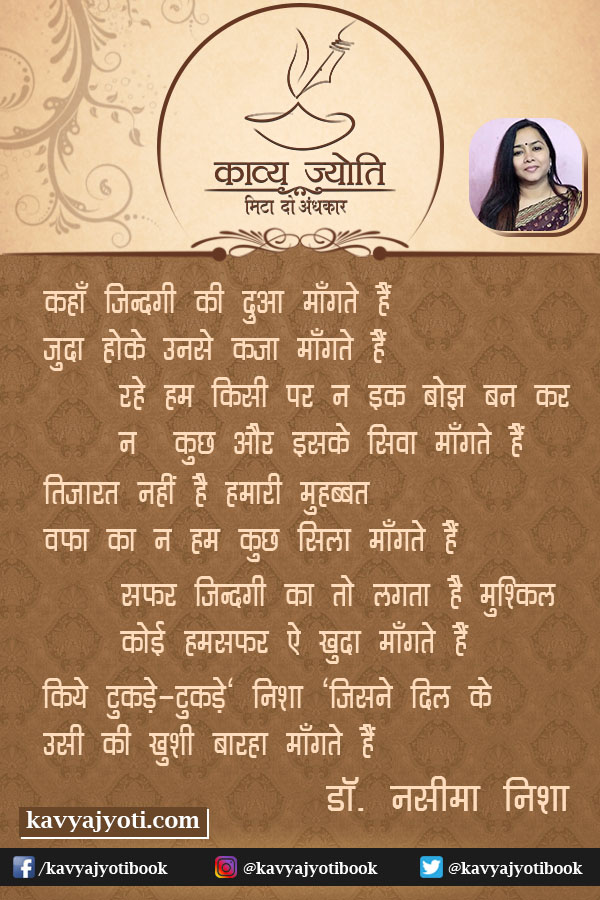 काव्य ज्योति
मिटा दो अंधकार
कहाँ जिन्दगी की दुआ माँगते हैं
जुदा होके उनसे कजा माँगते हैं
रहे हम किसी पर न इक बोझ बन कर
न कुछ और इसके सिवा माँगते हैं
तिजारत नहीं है हमारी मुहब्बत
वफा का न हम कुछ सिला माँगते हैं
सफर जिन्दगी का तो लगता है मुश्किल
कोई हमसफर ऐ खुदा माँगते हैं
किये टुकड़े-टुकड़े‘ निशा ‘जिसने दिल के
उसी की खुशी बारहा माँगते हैं
डॉ. नसीमा निशा
kavyajyoti.com
/kavyajyotibook @kavyajyotibook @kavyajyotibook